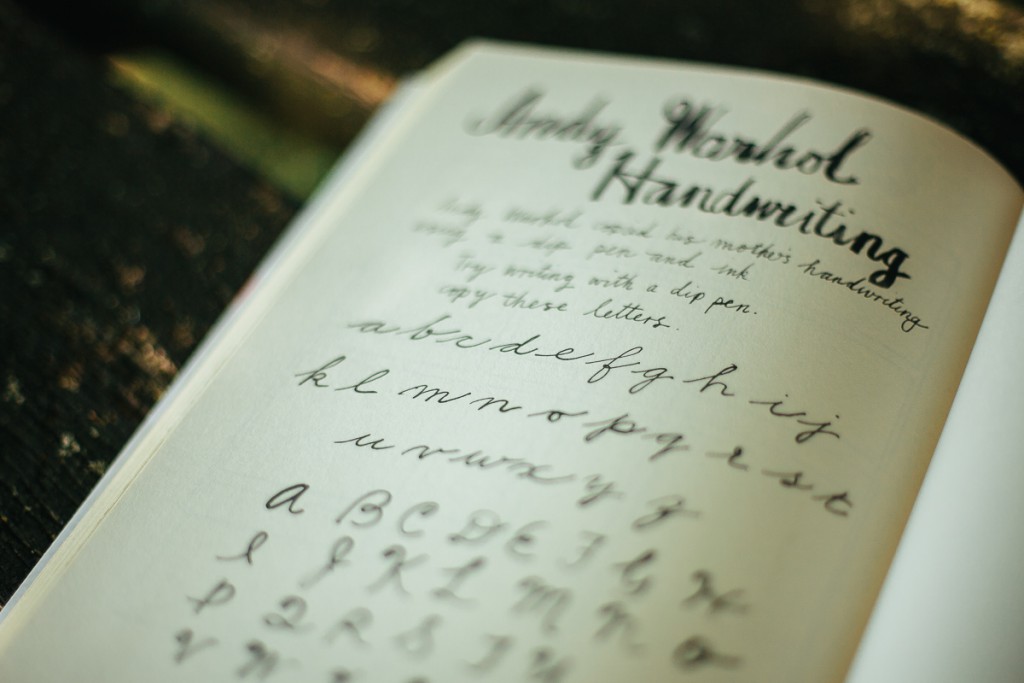 Andy Warhol
Handwriting
Andy Warhol used his mother's handwriting
using a dip pen and ink
Try writing with a dip pen.
copy these letters.
a b c d e f g h i j
k l m n o p q r s t
u v w x y z
a B C D E F G H
I J K L M N O
P Q R S T U
V W